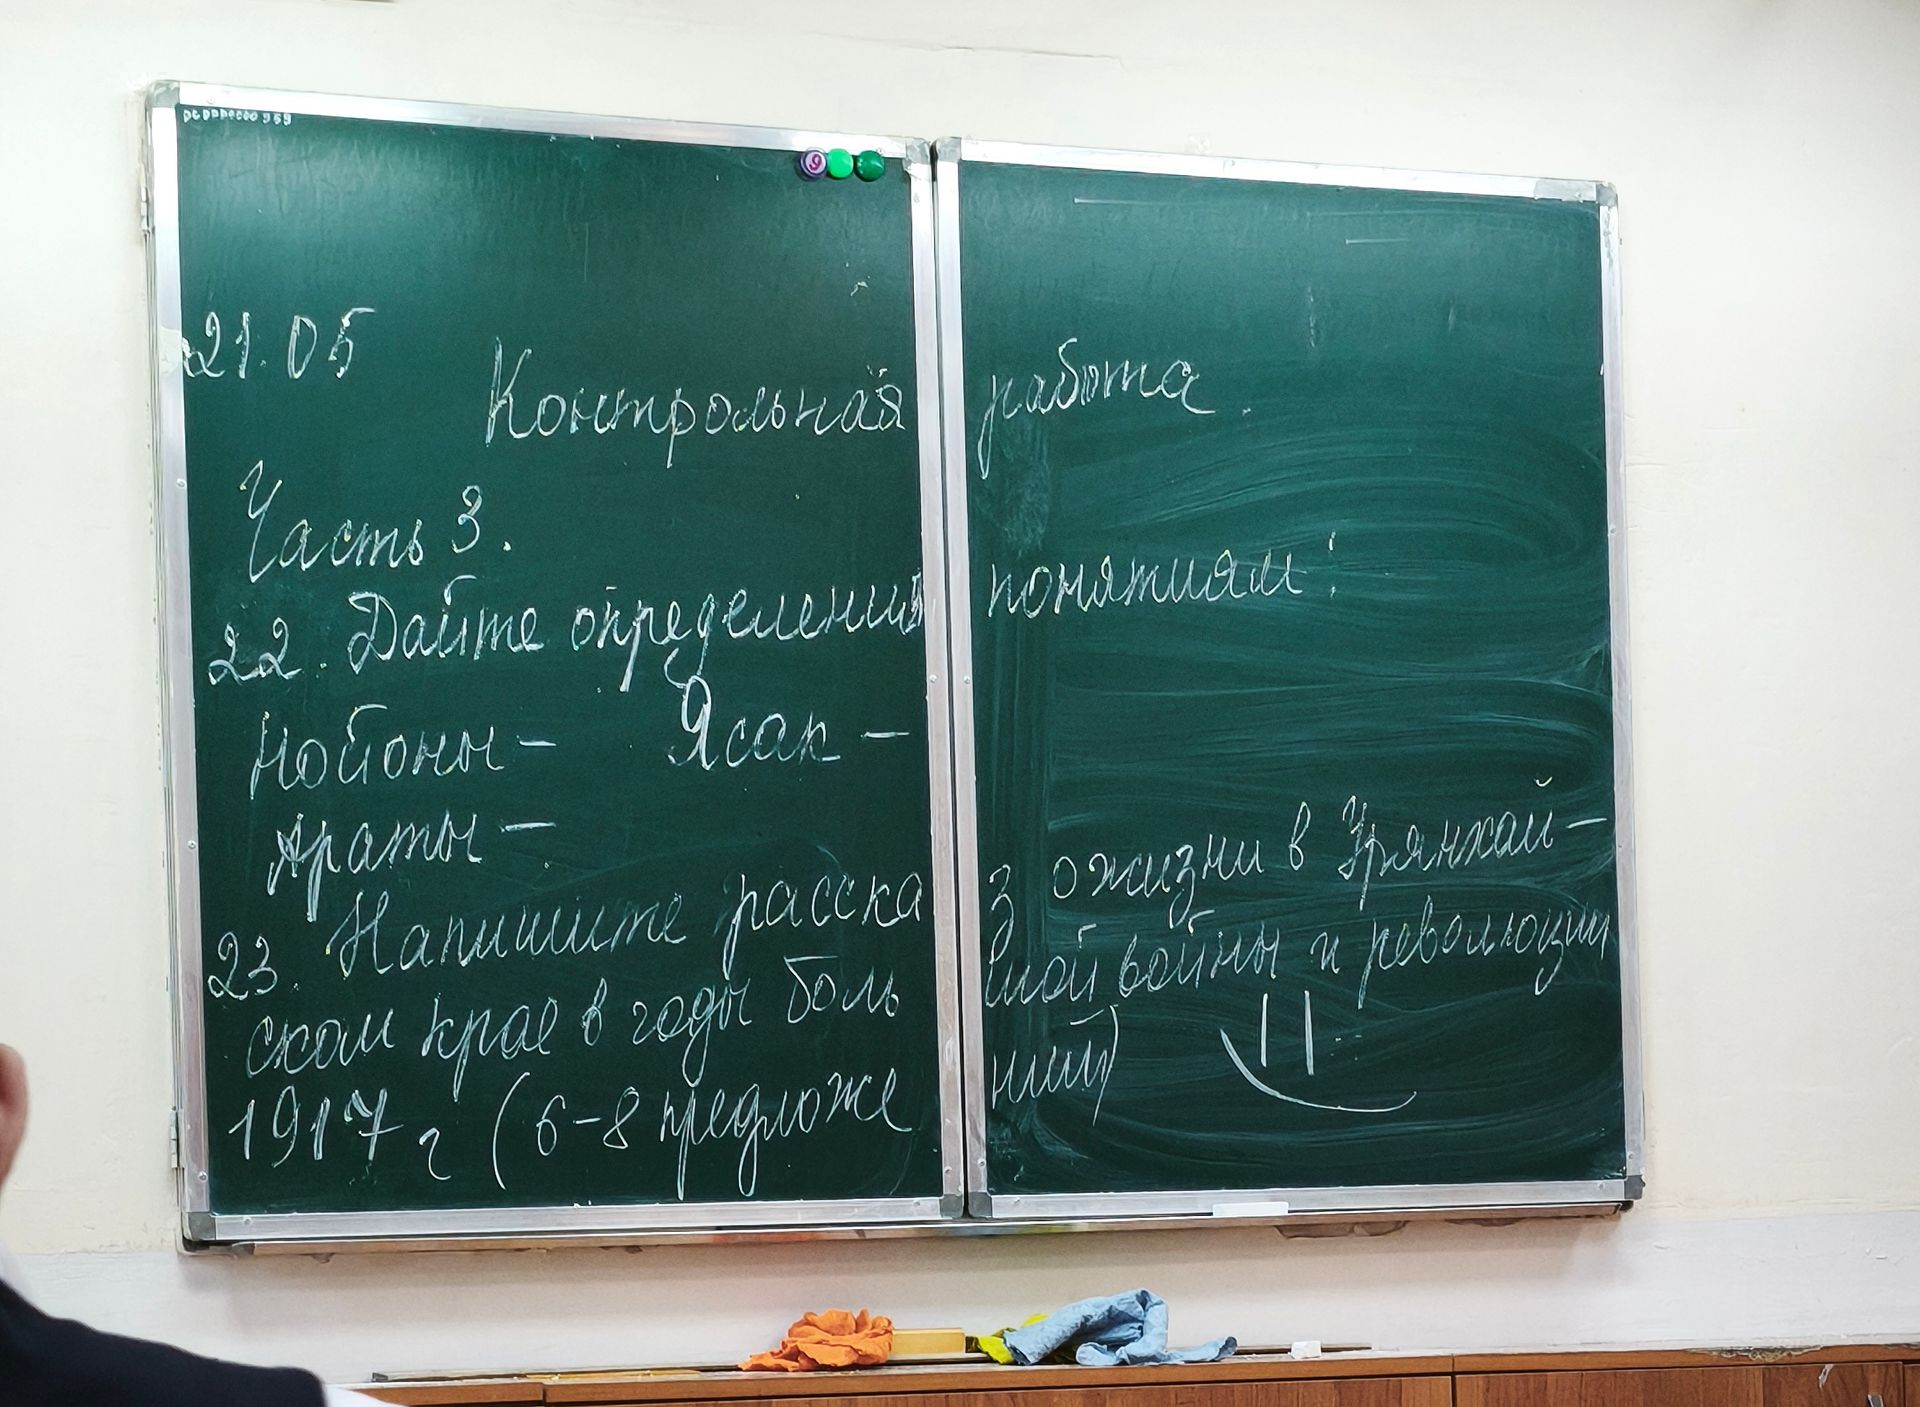 21.05
Контрольная работа.
Часть 3.
22. Дайте определения понятиям:
Нойоны – Ясак –
Араты –
23. Напишите рассказ о жизни в Урянхай–
ском крае в годы большой войны и революции
1917 г (6-8 предложений)